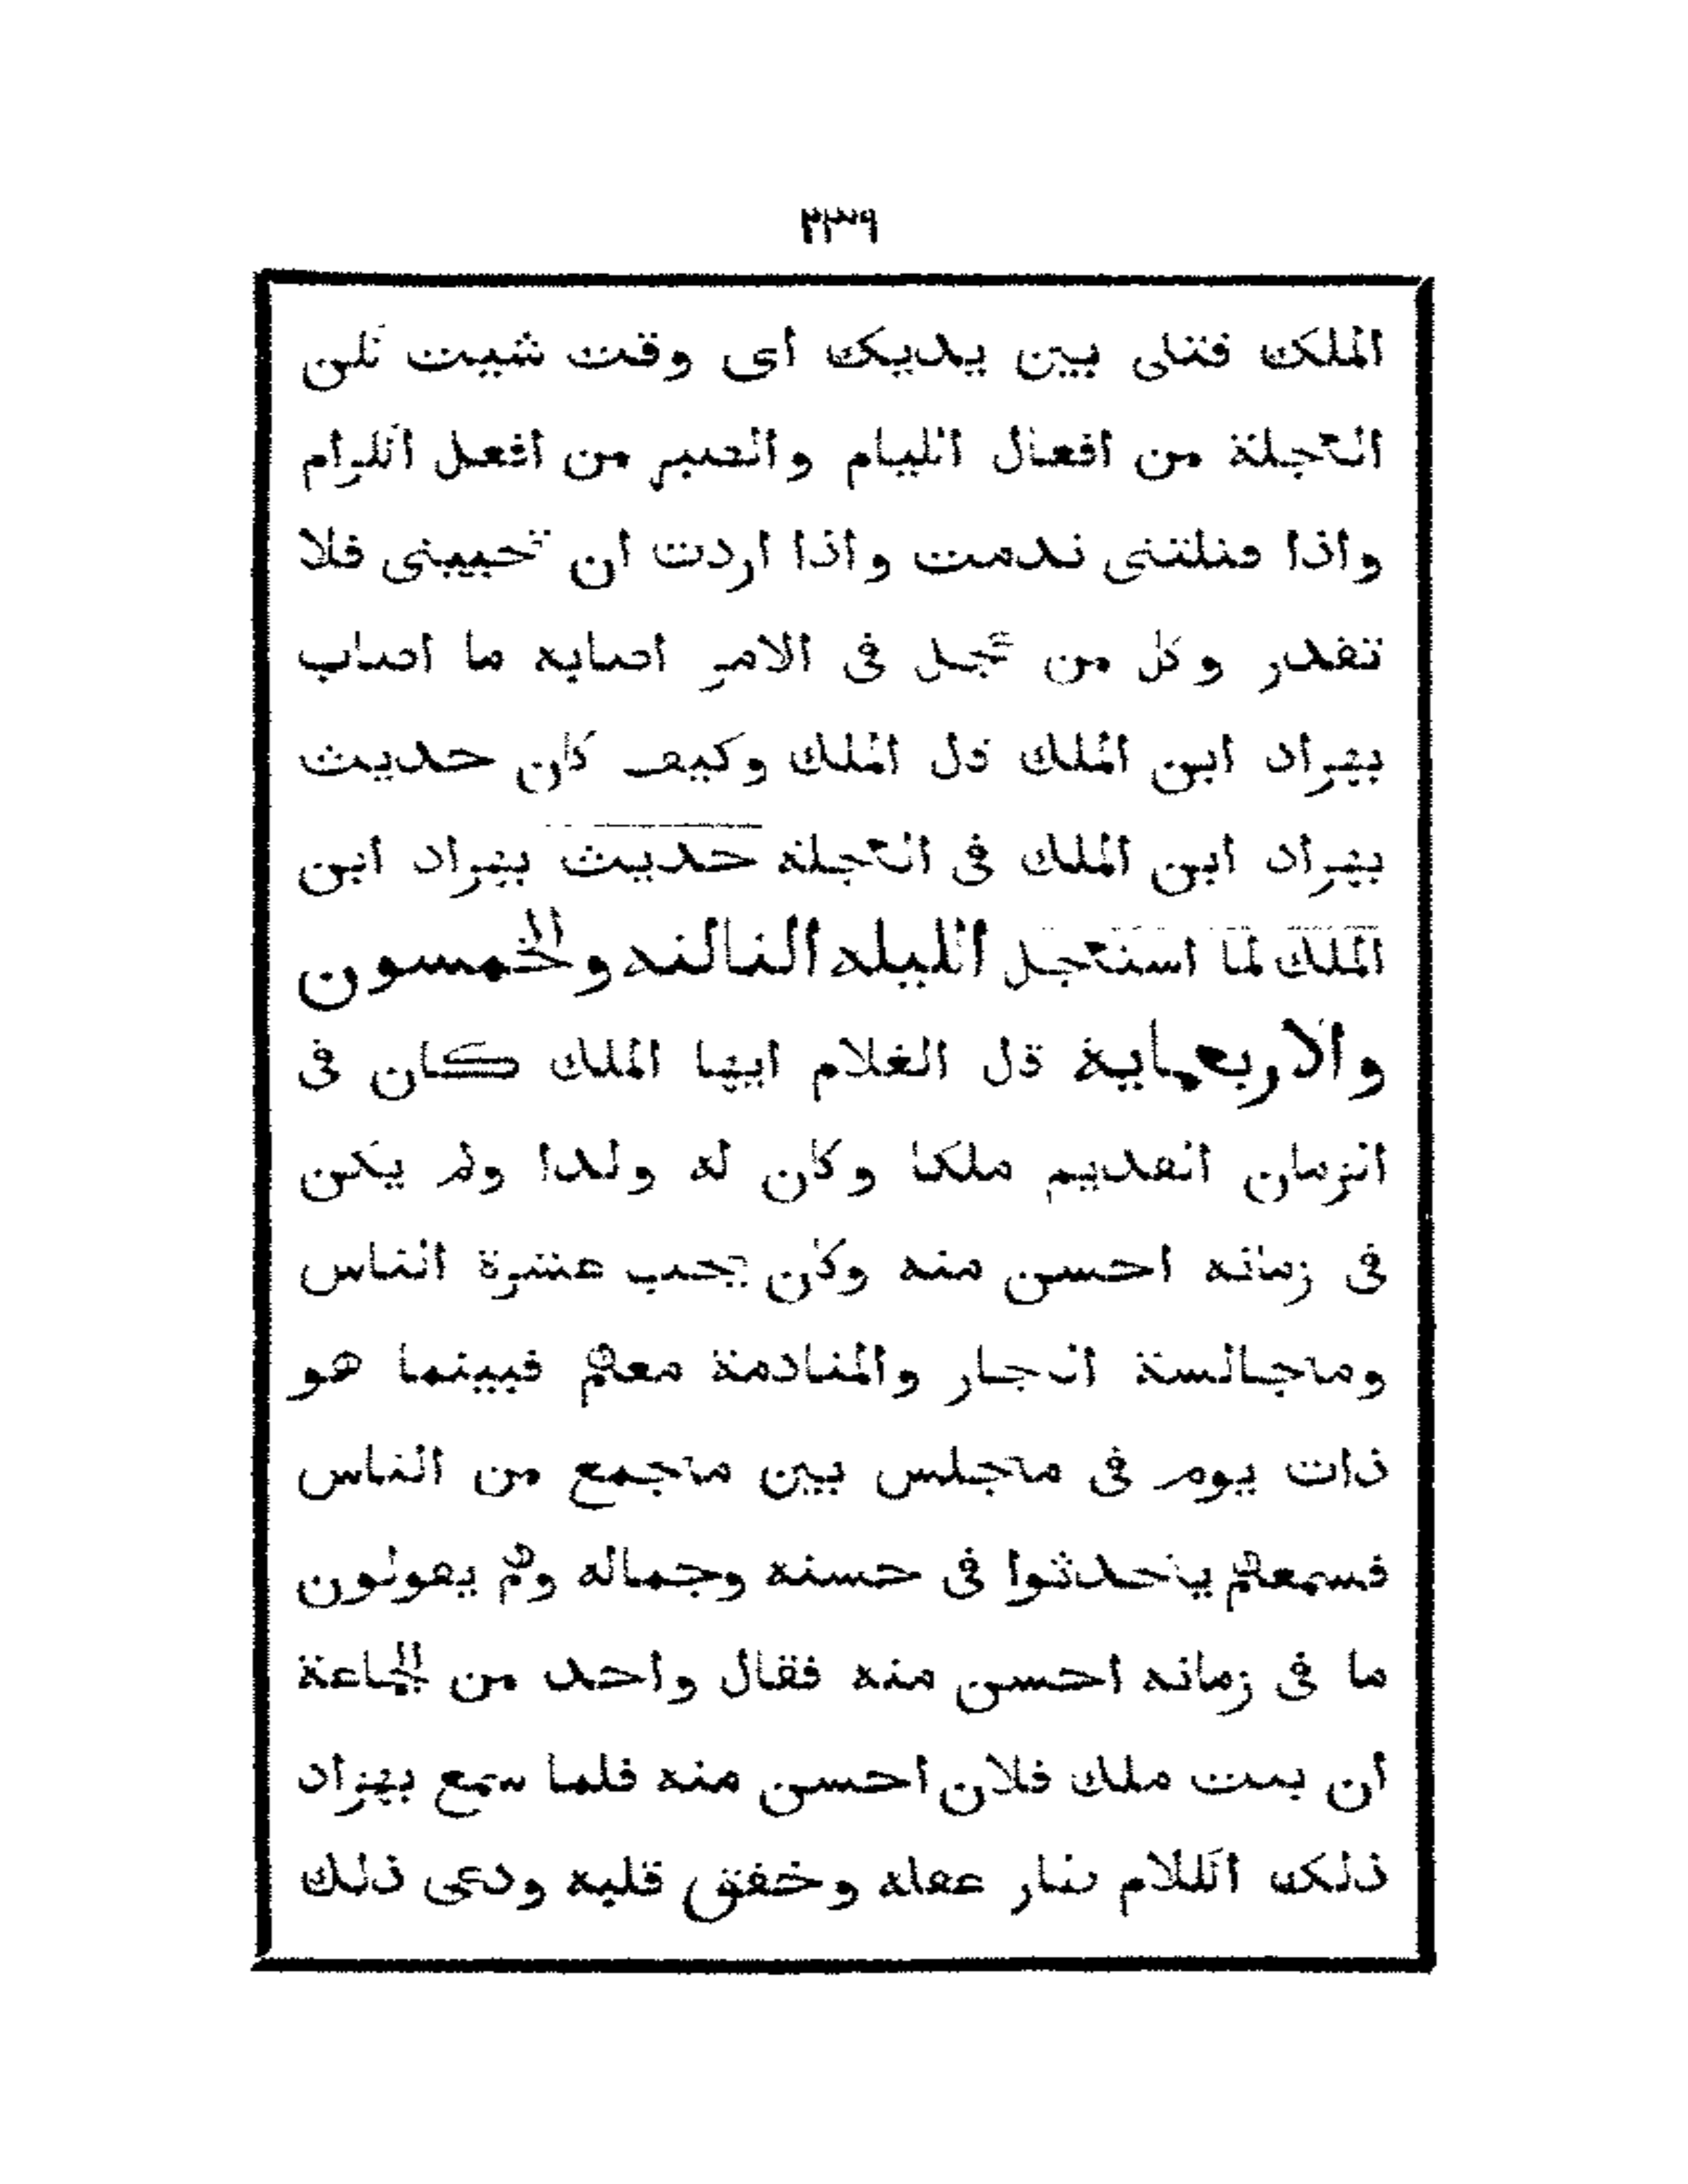 ٢٣٩
الملك فقتلى بين يديك اى وقت شيت لكن
العجلة من افعال الليام والصبر من افعل الكرام
واذا قتلتنى ندمت واذا اردت ان تحيينى فلا
تقدر وكل من عجل فى الامر اصابه ما اصاب
بهراد ابن الملك قل الملك وكيف كان حديث
بهراد ابن الملك فى العجلة حديث بهراد ابن
الملك لما استعجل الليله الثالثه والخمسون
والاربعماية قل الغلام ايها الملك كان فى
الزمان القديم ملكا وكان له ولدا ولم يكن
فى زمانه احسن منه وكان يحب عشرة الناس
ومجالسة التجار والمنادمة معهم فبينما هو
ذات يوم فى مجلس بين مجمع من الناس
فسمعهم يتحدثوا فى حسنه وجماله وهم يقولون
ما فى زمانه احسن منه فقال واحد من الجماعة
ان بنت ملك فلان احسن منه فلما سمع بهزاد
ذلك الكلام طار عقله وخفق قلبه ودعى ذلك